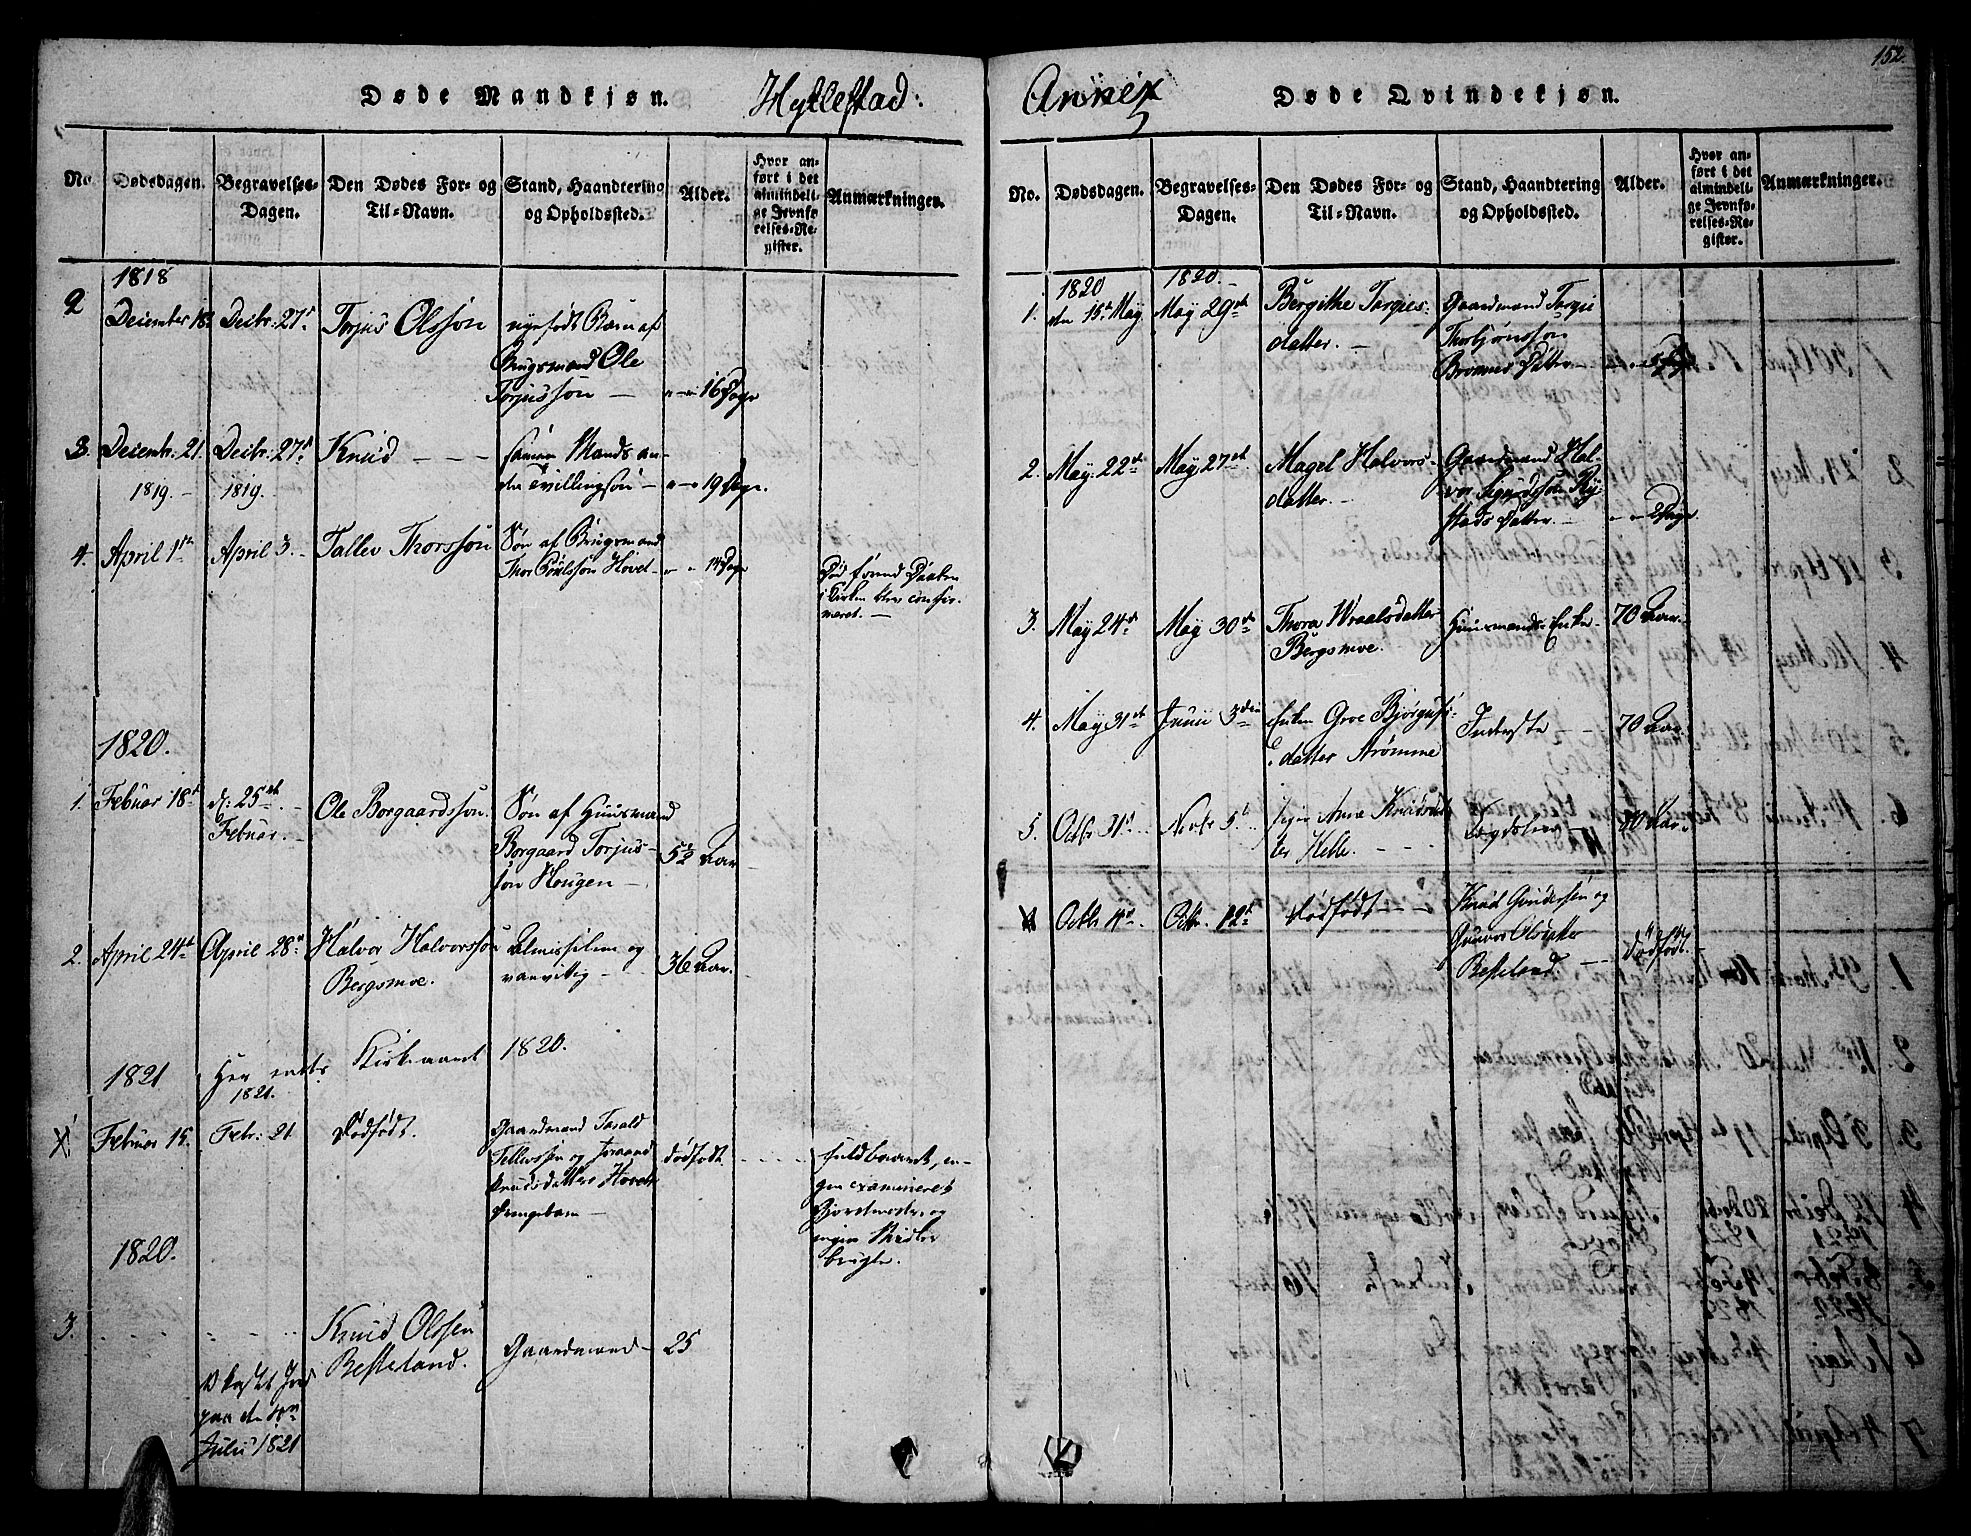 152.
Døde Mandkjøn.
Hyllestad:
Annex
Døde Qvindekjøn.
No.
Dødsdagen.
Begravelses-
Dagen.
Den Dødes For- og
Til-Navn.
Stand, Haandtering
og Opholdssted.
Alder.
Hvor an-
ført i det
almindeli-
ge Jevnfø-
relses-Re-
gister.
Anmærkninger.
1818
2
December 18
Decbr. 27
Torjus Olsson
nyefødt Barn af
Brugsmand Ole
Torjusson
16 Dage
3.
Decembr. 21.
Decbr. 27
Knud
samme Mands an-
den Tvillingsøn
19 Dage.
1819.
1819.
4.
April 1ste
April 3.
Tallev Thorsson
Søn af Brugsmand
Thor Hovet
14 Dage
Død forend Daaben
i Kirken blev confir-
meret.
1820.
1.
Februar 18
d: 25de
Februar.
Ole Borgaardsson.
Søn af Huusmand
Borgaard Torjus-
søn Hougen
5½ Aar
2.
April 24de
April 28de
Halvor Halvorsson
Bergsmoe.
Almisselem og
vanvittig
36 Aar.
1821
Her
1821.
1820.
Februar 15.
Febr. 21
Dødfødt.
Gaardmand Tarald
Tellevssen og Joraand
Knudsdatters Hovet
Drengebarn
dødfødt.
fuldbaaret, in-
gen examineret
Gjordmoder, og
ingen Midler
brugte.
1820.
3.
Knud Olsen
Besteland.
Gaardmand
25
kastet Jord
paa den
Julii 1821
No.
Dødsdagen.
Begravelses-
Dagen.
Den Dødes For- og
Til-Navn.
Stand, Haandtering
og Opholdssted.
Alder.
Hvor an-
ført i det
almindeli-
ge Jevnfø-
relses-Re-
gister.
Anmærkninger.
1820
1820.
1.
den 15de May
May 29de
Bergithe Targies-
datter.
Gaardmand Targie
Thorbjønsson
Brommes Datter
2.
May 22de
May 27de
Magel Halvors-
datter.
Gaardmand Hal-
vor Sigurdsson Ry-
stads Datter.
2 Dage.
3.
May 24de
May 30de
Thora Wraalsdatter
Bergsmoe.
Huusmands Enke
70 Aar.
4.
May 31te
Junii 3den
Enken Groe Bjørgufs-
datter Strømme
Inderste
70 Aar.
5.
Octbr 31
Novbr 5
Pigen Anne Knudsdat-
ter Helle.
Lægdslem
80 Aar
Octbr 11
Octbr. 12
Dødfødt
Knud Gundersen og
Gunvor Olsdatter
Besteland.
Dødfødt.